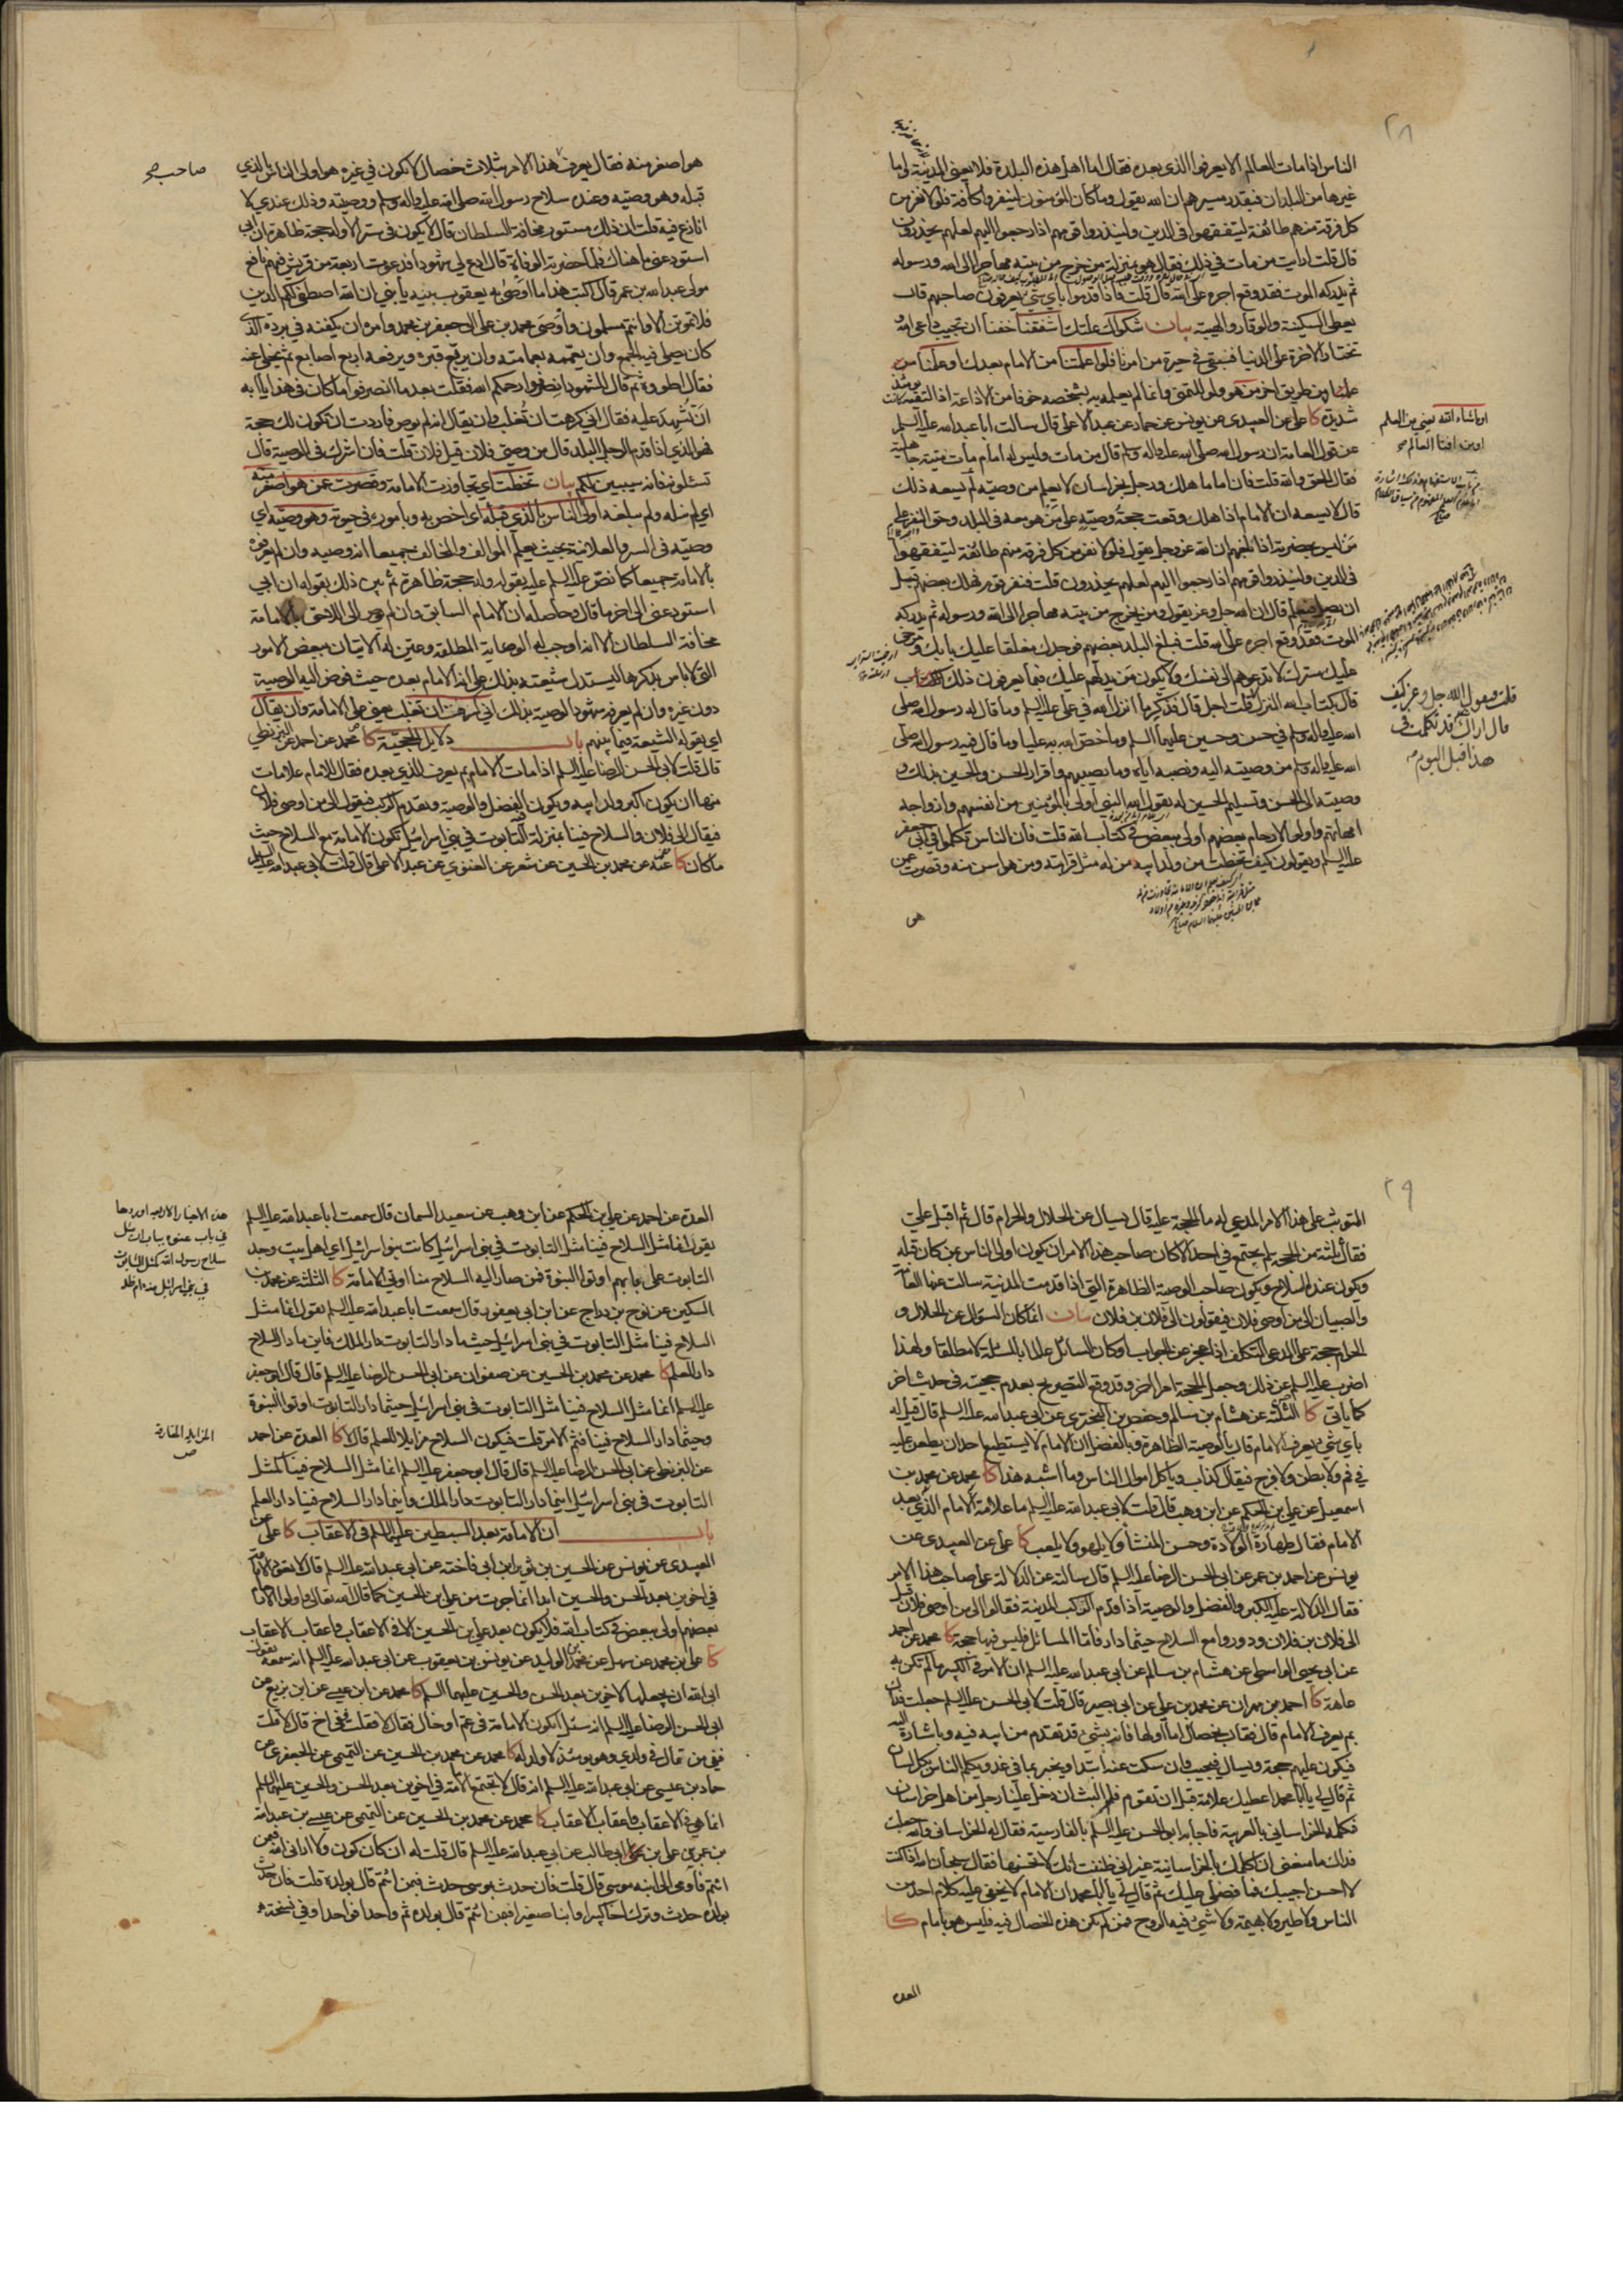 ٢٨
الناس اذا مات العالم الا يعرفوا الذي بعده فقال اما اهل هذه البلدة فلا يعني المدينة واما
غيرها من البلدان فبقدر مسيرهم ان الله يقول وما كان المؤمنون لينفروا كافة فلولا نفر من
كل فرقة منهم طائفة ليتفقهوا في الدين ولينذروا قومهم اذا رجعوا اليهم لعلهم يحذرون
قال قلت ارايت من مات في ذلك فقال هو بمنزلة من خرج من بيته مهاجرا الى الله ورسوله
ثم يدركه الموت فقد وقع اجره على الله قال قلت فاذا قدموا باي شيء يعرفون صاحبهم قال
يعطى السكينة والوقار والهيبة بيان شكواك علتك اشفقنا خفنا ان تجيب داعي الله و
تختار الاخرة على الدنيا فنبقى في حيرة من امرنا فلو اعلمتنا من الامام بعدك او علمنا من
علمنا من طريق اخر من هو ولو للتمني وانما لم يعلمه بشخصه خوفا من الاذاعة اذ التقية كانت
شديدة كا علي عن العبيدي عن يونس عن حماد عن عبد الاعلى قال سالت ابا عبد الله عليه السلم
عن قول العامة ان رسول الله صلى الله عليه واله وسلم قال من مات وليس له امام مات ميتة جاهلية
فقال الحق والله قلت فان اماما هلك ورجل بخراسان لا يعلم من وصيه لم يسعه ذلك
قال لا يسعه ان الامام اذا هلك وقعت حجة وصيه على من هو معه في البلد وحق النفر على
من ليس بحضرته اذا بلغهم ان الله عز وجل يقول فلولا نفر من كل فرقة منهم طائفة ليتفقهوا
في الدين ولينذروا قومهم اذا رجعوا اليهم لعلهم يحذرون قلت فنفر قوم فهلك بعضهم قبل
ان يصل فيعلم قال ان الله جل وعز يقول ومن يخرج من بيته مهاجرا الى الله ورسوله ثم يدركه
الموت فقد وقع اجره على الله قلت فبلغ البلد بعضهم فوجدك مغلقا عليك بابك ومرخى
عليك سترك لا تدعوهم الى نفسك ولا يكون من يدلهم عليك فبما يعرفون ذلك
قال بكتاب الله المنزل قلت اجل قال فذكر ما انزل الله في علي عليه السلم وما قال له رسول الله صلى
الله عليه واله وسلم في حسن وحسين عليهما السلم وما خص الله به عليا وما قال فيه رسول الله صلى
الله عليه واله وسلم من وصيته اليه ونصبه اياه وما يصيبهم واقرار الحسن والحسين بذلك و
وصيته الى الحسن وتسليم الحسين له بقول الله النبي اولى بالمؤمنين من انفسهم وازواجه
امهاتهم واولوا الارحام بعضهم اولى ببعض في كتاب الله قلت فان الناس تكلموا في ابي جعفر
عليه السلم ويقولون كيف تخطت من ولد ابيه من له مثل قرابته ومن هو اسن منه وقصرت عمن
هو
او ما شاء الله يعني من العلم
او من افتا العالم
قلت فيقول الله جل وعز كيف
قال اراك قد تكلمت في
هذا قبل اليوم
هو اصغر منه فقال يعرف هذا الامر بثلاث خصال لا تكون في غيره هو اولى الناس بالذي
قبله وهو وصيه وعنده سلاح رسول الله صلى الله عليه واله وسلم ووصيته وذلك عندي لا
انازع فيه قلت ان ذلك مستور مخافة السلطان قال لا يكون في ستر الا وله حجة ظاهرة ان ابي
استودعني ما هناك فلما حضرته الوفاة قال ادع لي شهودا فدعوت اربعة من قريش فيهم نافع
مولى عبد الله بن عمر قال اكتب هذا ما اوصى به يعقوب بنيه يا بني ان الله اصطفى لكم الدين
فلا تموتن الا وانتم مسلمون واوصى محمد بن علي الى جعفر بن محمد وامره ان يكفنه في برده الذي
كان يصلي فيه الجمع وان يعممه بعمامته وان يربع قبره ويرفعه اربع اصابع ثم يخلي عنه
فقال اطووه ثم قال للشهود انصرفوا رحمكم الله فقلت بعد ما انصرفوا ما كان في هذا يا ابه
ان تشهد عليه فقال اني كرهت ان تغلب وان يقال انه لم يوص فاردت ان تكون لك حجة
فهو الذي اذا قدم الرجل البلد قال من وصي فلان قيل فلان قلت فان اشرك في الوصية قال
تسئلونه فانه سيبين لكم بيان تخطت اي تجاوزت الامامة وقصرت عمن هو اصغر منه
اي لم تنله ولم تبلغه اولى الناس بالذي قبله اي اخص به وباموره في حيوته وهو وصيه اي
وصيه في السر والعلانية بحيث يعلم المؤالف والمخالف جميعا انه وصيه وان لم يعرفوه
بالامامة جميعا كما نص عليه السلم عليه بقوله وله حجة ظاهرة ثم بين ذلك بقوله ان ابي
استودعني الى اخر ما قال وحاصله ان الامام السابق وان لم يوص الى اللاحق بالامامة
مخافة السلطان الا انه اوجب له الوصاية المطلقة وعين له الاتيان ببعض الامور
التي لا باس بذكرها ليستدل شيعته بذلك على انه الامام بعده حيث فوض اليه الوصية
دون غيره وان لم يعرفه شهود الوصية بذلك اني كرهت ان تغلب يعني على الامامة وان يقال
اي يقوله الشيعة فيما بينهم باب دلايل الحجية كا محمد عن احمد عن البزنطي
قال قلت لابي الحسن الرضا عليه السلم اذا مات الامام بم يعرف الذي بعده فقال للامام علامات
منها ان يكون اكبر ولد ابيه ويكون فيه الفضل والوصية ويقدم الركب فيقول الى من اوصى فلان
فيقال الى فلان والسلاح فينا بمنزلة التابوت في بني اسرائيل تكون الامامة مع السلاح حيث
ما كان كا عنه عن محمد بن الحسين عن شعر عن الغنوي عن عبد الاعلى قال قلت لابي عبد الله عليه السلم
صاحب
٢٩
المتوثب على هذا الامر المدعي له ما الحجة عليه قال يسال عن الحلال والحرام قال ثم اقبل علي
فقال ثلثة من الحجة لم يجتمع في احد الا كان صاحب هذا الامر ان يكون اولى الناس بمن كان قبله
ويكون عنده السلاح ويكون صاحب الوصية الظاهرة التي اذا قدمت المدينة سالت عنها العامة
والصبيان الى من اوصى فلان فيقولون الى فلان بن فلان بيان انما كان السؤال عن الحلال و
الحرام حجة على المدعي المتكلف اذا عجز عن الجواب او كان السائل عالما بالمسئلة لا مطلقا ولهذا
اضرب عليه السلم عن ذلك وجعل الحجة امرا اخر وقد وقع التصريح بعدم حجيته في حديث اخر
كما ياتي كا الثلثة عن هشام بن سالم وحفص بن البختري عن ابي عبد الله عليه السلم قال قيل له
باي شيء يعرف الامام قال بالوصية الظاهرة وبالفضل ان الامام لا يستطيع احد ان يطعن عليه
في فم ولا بطن ولا فرج فيقال كذاب وياكل اموال الناس وما اشبه هذا كا محمد عن محمد بن
اسمعيل عن علي بن الحكم عن ابن وهب قال قلت لابي عبد الله عليه السلم ما علامة الامام الذي بعد
الامام فقال طهارة الولادة وحسن المنشأ ولا يلهو ولا يلعب كا علي عن العبيدي عن
يونس عن احمد بن عمر عن ابي الحسن الرضا عليه السلم قال سالته عن الدلالة على صاحب هذا الامر
فقال الدلالة عليه الكبر والفضل والوصية اذا قدم الركب المدينة فقالوا الى من اوصى فلان قيل
الى فلان بن فلان ودوروا مع السلاح حيثما دار فاما المسائل فليس فيها حجة كا محمد عن احمد
عن ابي يحيى الواسطي عن هشام بن سالم عن ابي عبد الله عليه السلم ان الامر في الكبير ما لم تكن به
عاهة كا احمد بن مهران عن محمد بن علي عن ابي بصير قال قلت لابي الحسن عليه السلم جعلت فداك
بم يعرف الامام قال فقال بخصال اما اولها فانه بشيء قد تقدم من ابيه فيه وباشارة اليه
فيكون عليهم حجة ويسال فيجيب وان سكت عنه ابتدا ويخبر بما في غد ويكلم الناس بكل لسان
ثم قال لي يا ابا محمد اعطيك علامة قبل ان تقوم فلم البث ان دخل علينا رجل من اهل خراسان
فكلمه الخراساني بالعربية فاجابه ابو الحسن عليه السلم بالفارسية فقال له الخراساني والله جعلت
فداك ما منعني ان اكلمك بالخراسانية غير اني ظننت انك لا تحسنها فقال سبحان الله اذا كنت
لا احسن اجيبك فما فضلي عليك ثم قال لي يا ابا محمد ان الامام لا يخفى عليه كلام احد من
الناس ولا طير ولا بهيمة ولا شيء فيه الروح فمن لم يكن هذه الخصال فيه فليس هو بامام كا
العدة
العدة عن احمد عن علي بن الحكم عن ابن وهب عن سعيد السمان قال سمعت ابا عبد الله عليه السلم
يقول انما مثل السلاح فينا مثل التابوت في بني اسرائيل كانت بنو اسرائيل اي اهل بيت وجد
التابوت على بابهم اوتوا النبوة فمن صار اليه السلاح منا اوتي الامامة كا الثلثة عن محمد بن
السكين عن نوح بن دراج عن ابن ابي يعفور قال سمعت ابا عبد الله عليه السلم يقول انما مثل
السلاح فينا مثل التابوت في بني اسرائيل حيثما دار التابوت دار الملك فاين ما دار السلاح
دار العلم كا محمد عن محمد بن الحسين عن صفوان عن ابي الحسن الرضا عليه السلم قال قال ابو جعفر
عليه السلم انما مثل السلاح فينا مثل التابوت في بني اسرائيل حيثما دار التابوت اوتوا النبوة
وحيثما دار السلاح فينا فثم الامر قلت فيكون السلاح مزايلا للعلم قال لا كا العدة عن احمد
عن البزنطي عن ابي الحسن الرضا عليه السلم قال قال ابو جعفر عليه السلم انما مثل السلاح فينا كمثل
التابوت في بني اسرائيل اينما دار التابوت دار الملك واينما دار السلاح فينا دار العلم
باب ان الامامة بعد السبطين عليهما السلم في الاعقاب كا علي عن
العبيدي عن يونس عن الحسين بن ثوير بن ابي فاختة عن ابي عبد الله عليه السلم قال لا تعود الامامة
في اخوين بعد الحسن والحسين ابدا انما جرت من علي بن الحسين كما قال الله تعالى واولوا الارحام
بعضهم اولى ببعض في كتاب الله فلا يكون بعد علي بن الحسين الا في الاعقاب واعقاب الاعقاب
كا علي بن محمد عن سهل عن محمد بن الوليد عن يونس بن يعقوب عن ابي عبد الله عليه السلم انه سمعه يقول
ابى الله ان يجعلها لاخوين بعد الحسن والحسين عليهما السلم كا محمد عن ابن عيسى عن ابن بزيع عن
ابي الحسن الرضا عليه السلم انه سئل اتكون الامامة في عم او خال فقال لا فقلت ففي اخ قال لا قلت
ففي من قال في ولدي وهو يومئذ لا ولد له كا محمد عن محمد بن الحسين عن التميمي عن الجعفري عن
حماد بن عيسى عن ابي عبد الله عليه السلم انه قال لا تجتمع الامامة في اخوين بعد الحسن والحسين عليهما السلم
انما هي في الاعقاب واعقاب الاعقاب كا محمد عن محمد بن الحسين عن التميمي عن عيسى بن عبد الله
بن عمر بن علي بن ابي طالب عن ابي عبد الله عليه السلم قال قلت له ان كان كون ولا اراني الله فبمن
ائتم فاومى الى ابنه موسى قال قلت فان حدث بموسى حدث فبمن ائتم قال بولده قلت فان حدث
بولده حدث وترك اخا كبيرا وابنا صغيرا فبمن ائتم قال بولده ثم واحدا فواحدا وفي نسخة
هذه الاخبار الاربعة اوردها
في باب عنونه بباب ان مثل
سلاح رسول الله كمثل التابوت
في بني اسرائيل منه دام ظله
المزايلة المفارقة
ص